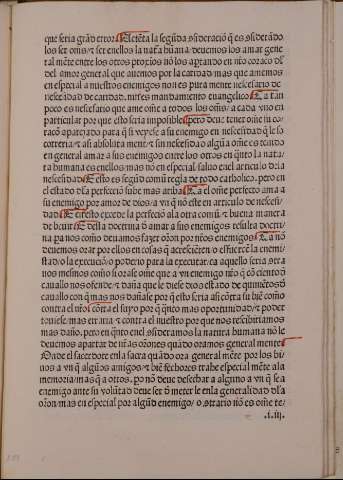 que seria grãd error. E cẽta la següda
los ser oms/ser enellos la natã huãna/deuemos los amar gene
ral mẽte entre los otros proprios nõ los aprtando en nro coraçõ
del amor general que auemos por la caridad/mas que amemos
en especial a nuestros enemigos non es pura mente necesario de
necesidad de caridad. nin es mandamiento euangelico. La tan
poco es necesario que ame oñe a todos los oms/a cada vno en
particular por que esto seria impossible pero deue tener oñe in co
raçõ apejado para q si veyese a su enemigo en nescesidad q le so
correria/asi absoluta mente/sin nescesidad o algũa oñe es tenido
en general amar a sus enemigos entre los otros en quãto la natu
ra humana es enellos/mas no en especial. saluo en el articulo dela
nescesidad E esto es segũd comũ regla de todo catholico. pero en
el estado dla perfeciõ sube mas arriba. Ca el oñe perfecto ama a
su enemigo por amor de dios/a vn q nõ este en articulo de necesi
dad. E en esto excede la perfeciõ ala otra comũ/buena manera
de beuir. E desta doctrina d amar a sus enemigos resulta doctri
na pa nos como deuamos fazer oraçõ por nros enemigos. Ca nõ
deuemos orar por ellos en cosas q acreciẽten o esfuercẽ la enemi
stad/o la execuciõ/o poderio para la executar/ca aquello seria sera
nos mesmos como si orase oñe que a vn enemigo nro q cõ ciento d
cauallo nos ofende/daña que le diese dios estado de quinientos d
cauallo con q mas nos dañase por q esto seria asi cõtra su biẽ como
contra el nro/cõtra el suyo por q quãto mas oportunidad/poder
touiese/mas erraria/contra el nuestro por que nos rescibiriamos
mas daño. pero en quãto enel cõsideramos la natura humana nõ le
deuemos apartar de nras oraçiones quãdo oramos general mente
Onde el sacerdote enla sacra quãdo ora general mẽte por los bi
uos/a vn q algũos amigos/biẽ fechores trahe especial mẽte ala
memoria/mas q a otros. por nõ deue desechar a alguno/a vn q sea
enemigo ante su volũtad deue ser d meter le enla generalidad dla
oraçõ/mas en especial por algũd enemigo/o contrario nõ es oñe te/
.i.iii.